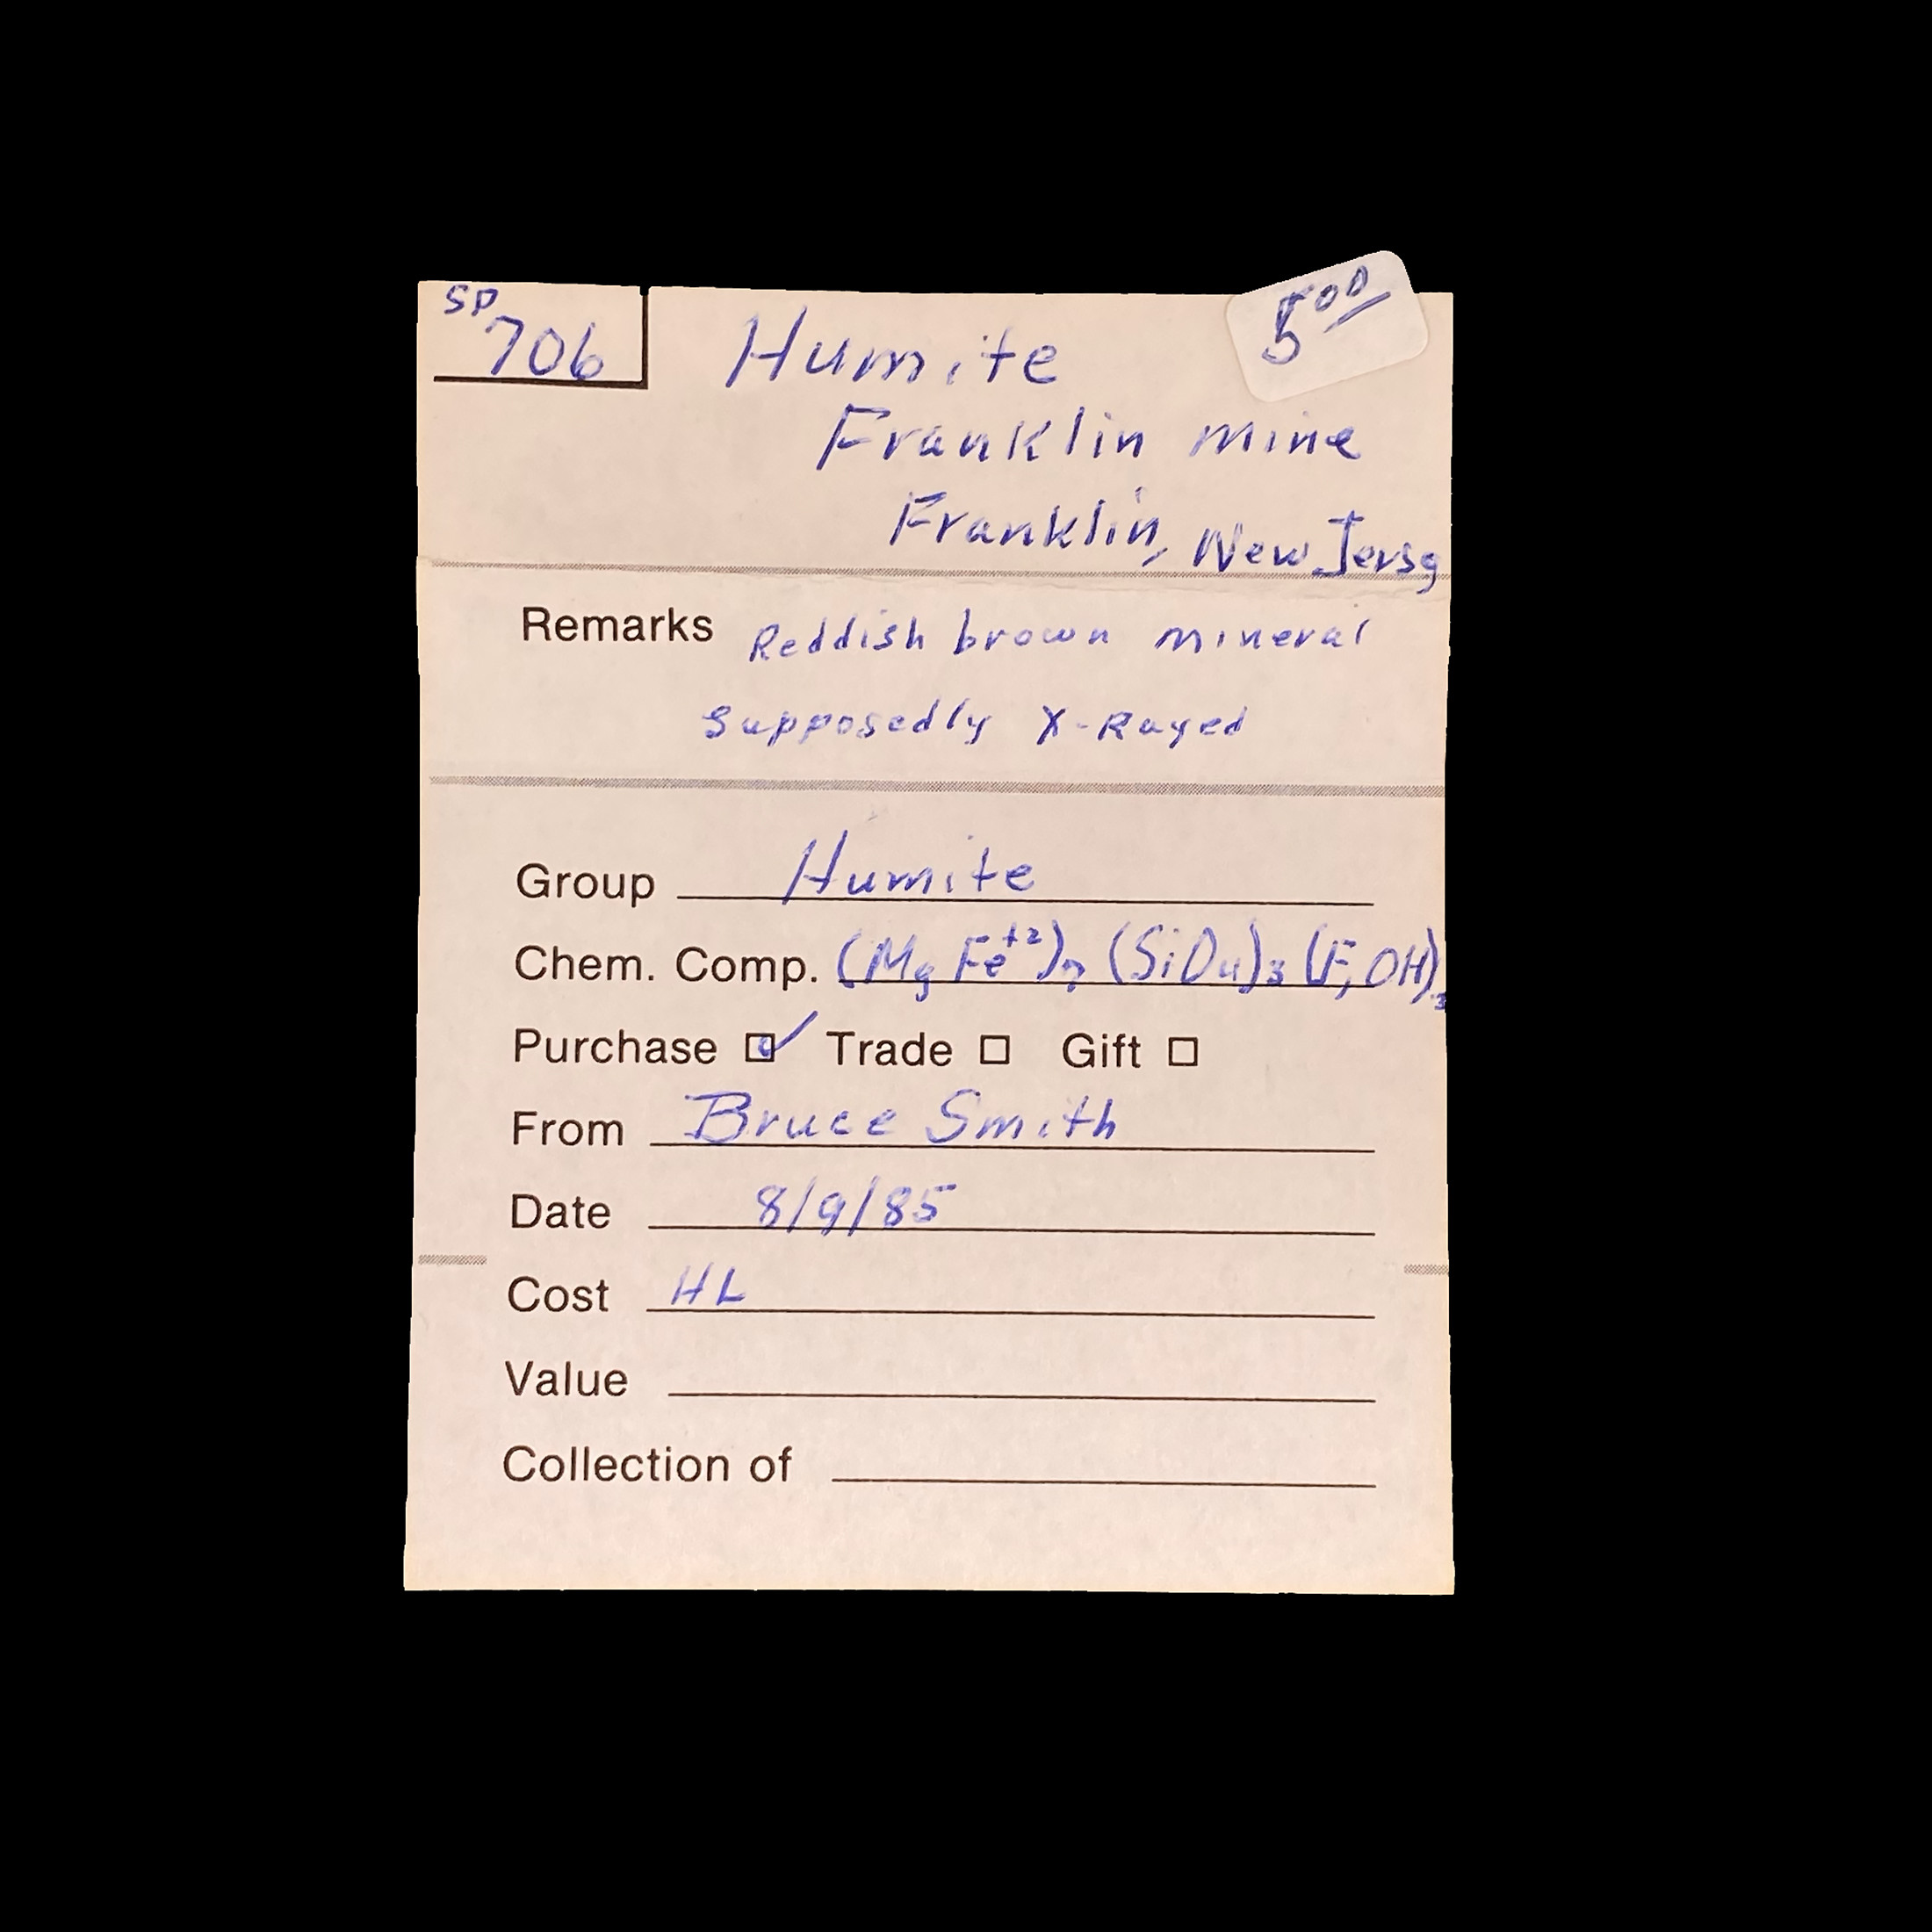 SP
706
Humite
5⁰⁰
Franklin mine
Franklin, New Jersy
Remarks Reddish brown mineral
supposedly X-Rayed
Group Humite
Chem. Comp. (Mg Fe⁺²)₇ (SiO₄)₃ (F, OH)₂
Purchase ☑ Trade ☐ Gift ☐
From Bruce Smith
Date 8/9/85
Cost HL
Value
Collection of